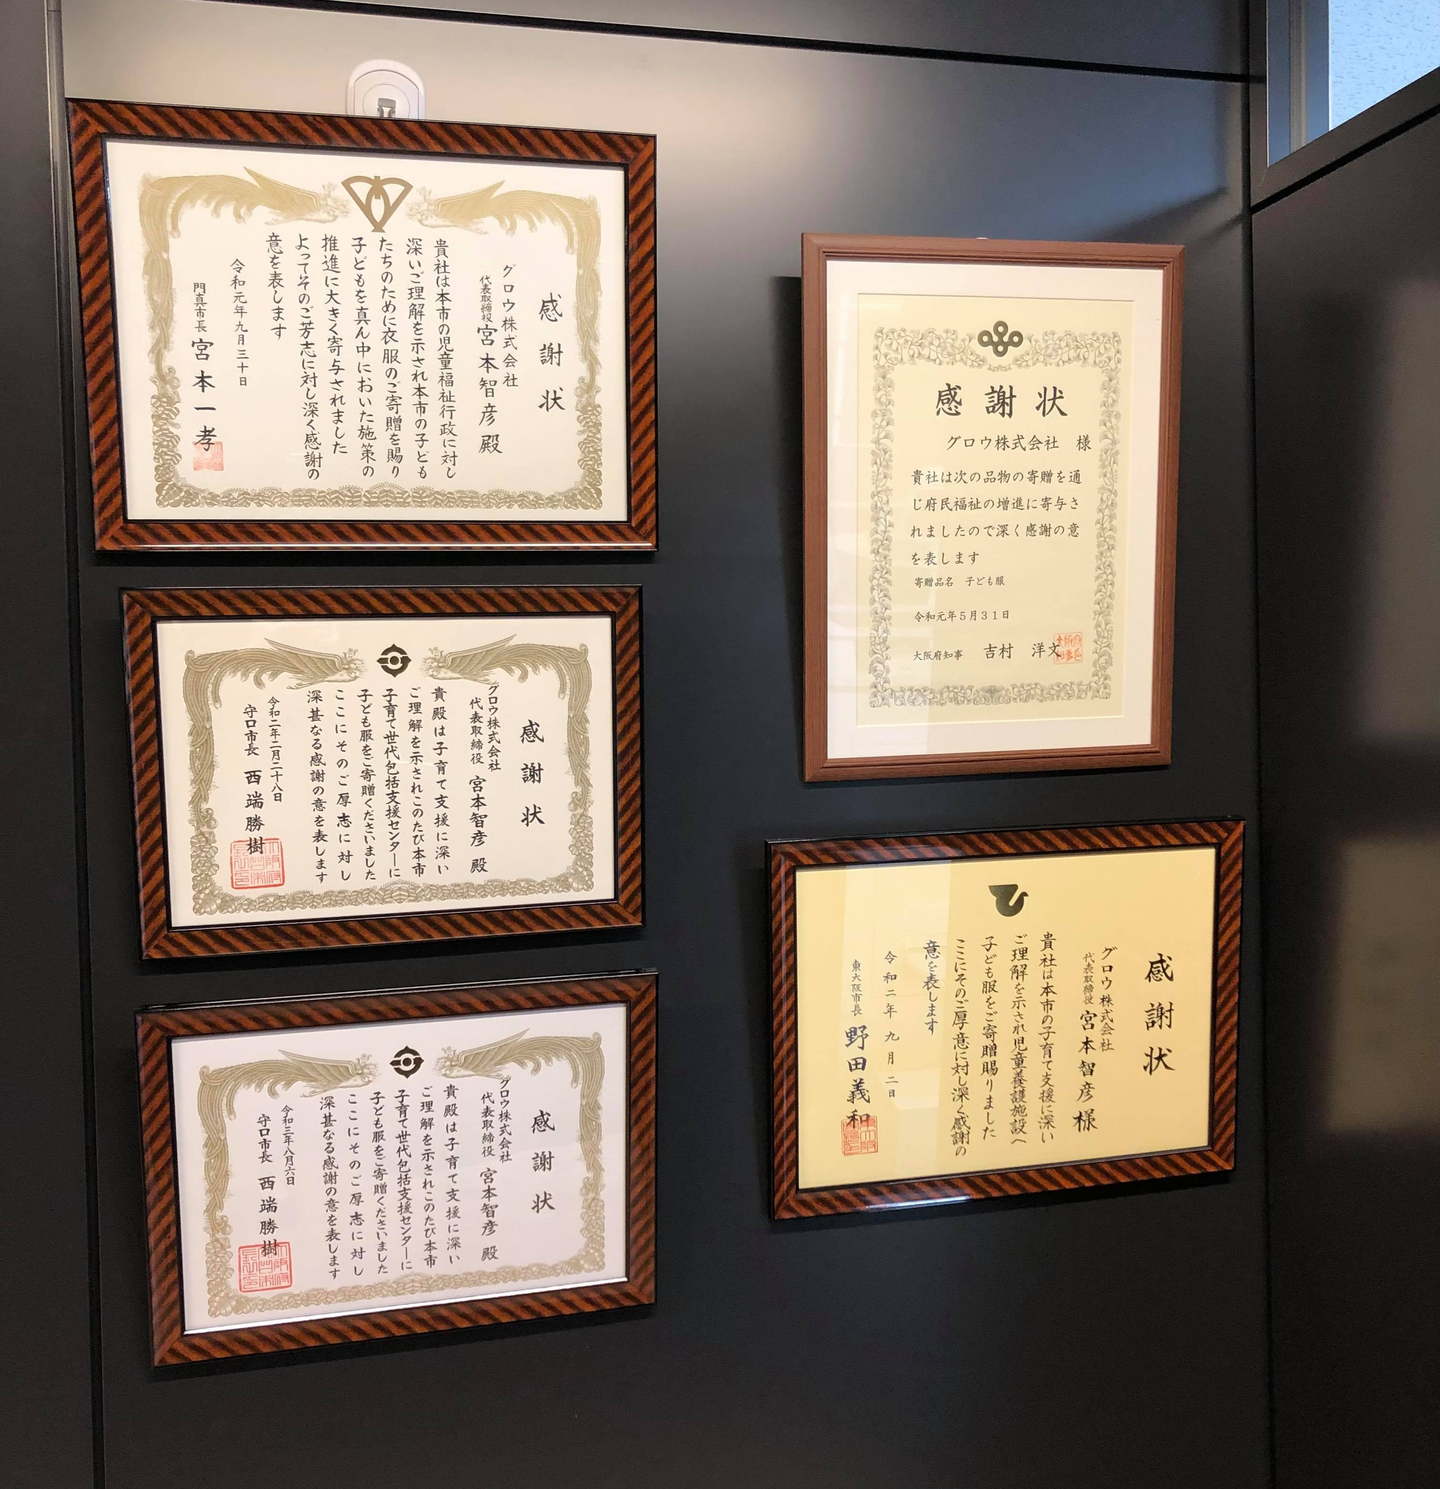 感謝状
グロウ株式会社
代表取締役 宮本智彦 殿
貴社は本市の児童福祉行政に対し
深いご理解を示され本市の子ども
たちのために衣服のご寄贈を賜り
子どもを真ん中においた施策の
推進に大きく寄与されました
よってそのご芳志に対し深く感謝の
意を表します
令和元年九月三十日
門真市長 宮本一孝
感謝状
グロウ株式会社
代表取締役 宮本智彦 殿
貴殿は子育て支援に深い
ご理解を示されこのたび本市
子育て世代包括支援センターに
子ども服をご寄贈くださいました
ここにそのご厚志に対し
深甚なる感謝の意を表します
令和二年二月二十八日
守口市長 西端勝樹
感謝状
グロウ株式会社
代表取締役 宮本智彦 殿
貴殿は子育て支援に深い
ご理解を示されこのたび本市
子育て世代包括支援センターに
子ども服をご寄贈くださいました
ここにそのご厚志に対し
深甚なる感謝の意を表します
令和三年八月六日
守口市長 西端勝樹
感謝状
グロウ株式会社 様
貴社は次の品物の寄贈を通
じ府民福祉の増進に寄与さ
れましたので深く感謝の意
を表します
寄贈品名 子ども服
令和元年5月31日
大阪府知事 吉村 洋文
感謝状
グロウ株式会社
代表取締役 宮本智彦 様
貴社は本市の子育て支援に深い
ご理解を示され児童養護施設へ
子ども服をご寄贈賜りました
ここにそのご厚意に対し深く感謝の
意を表します
令和二年九月二日
東大阪市長 野田義和